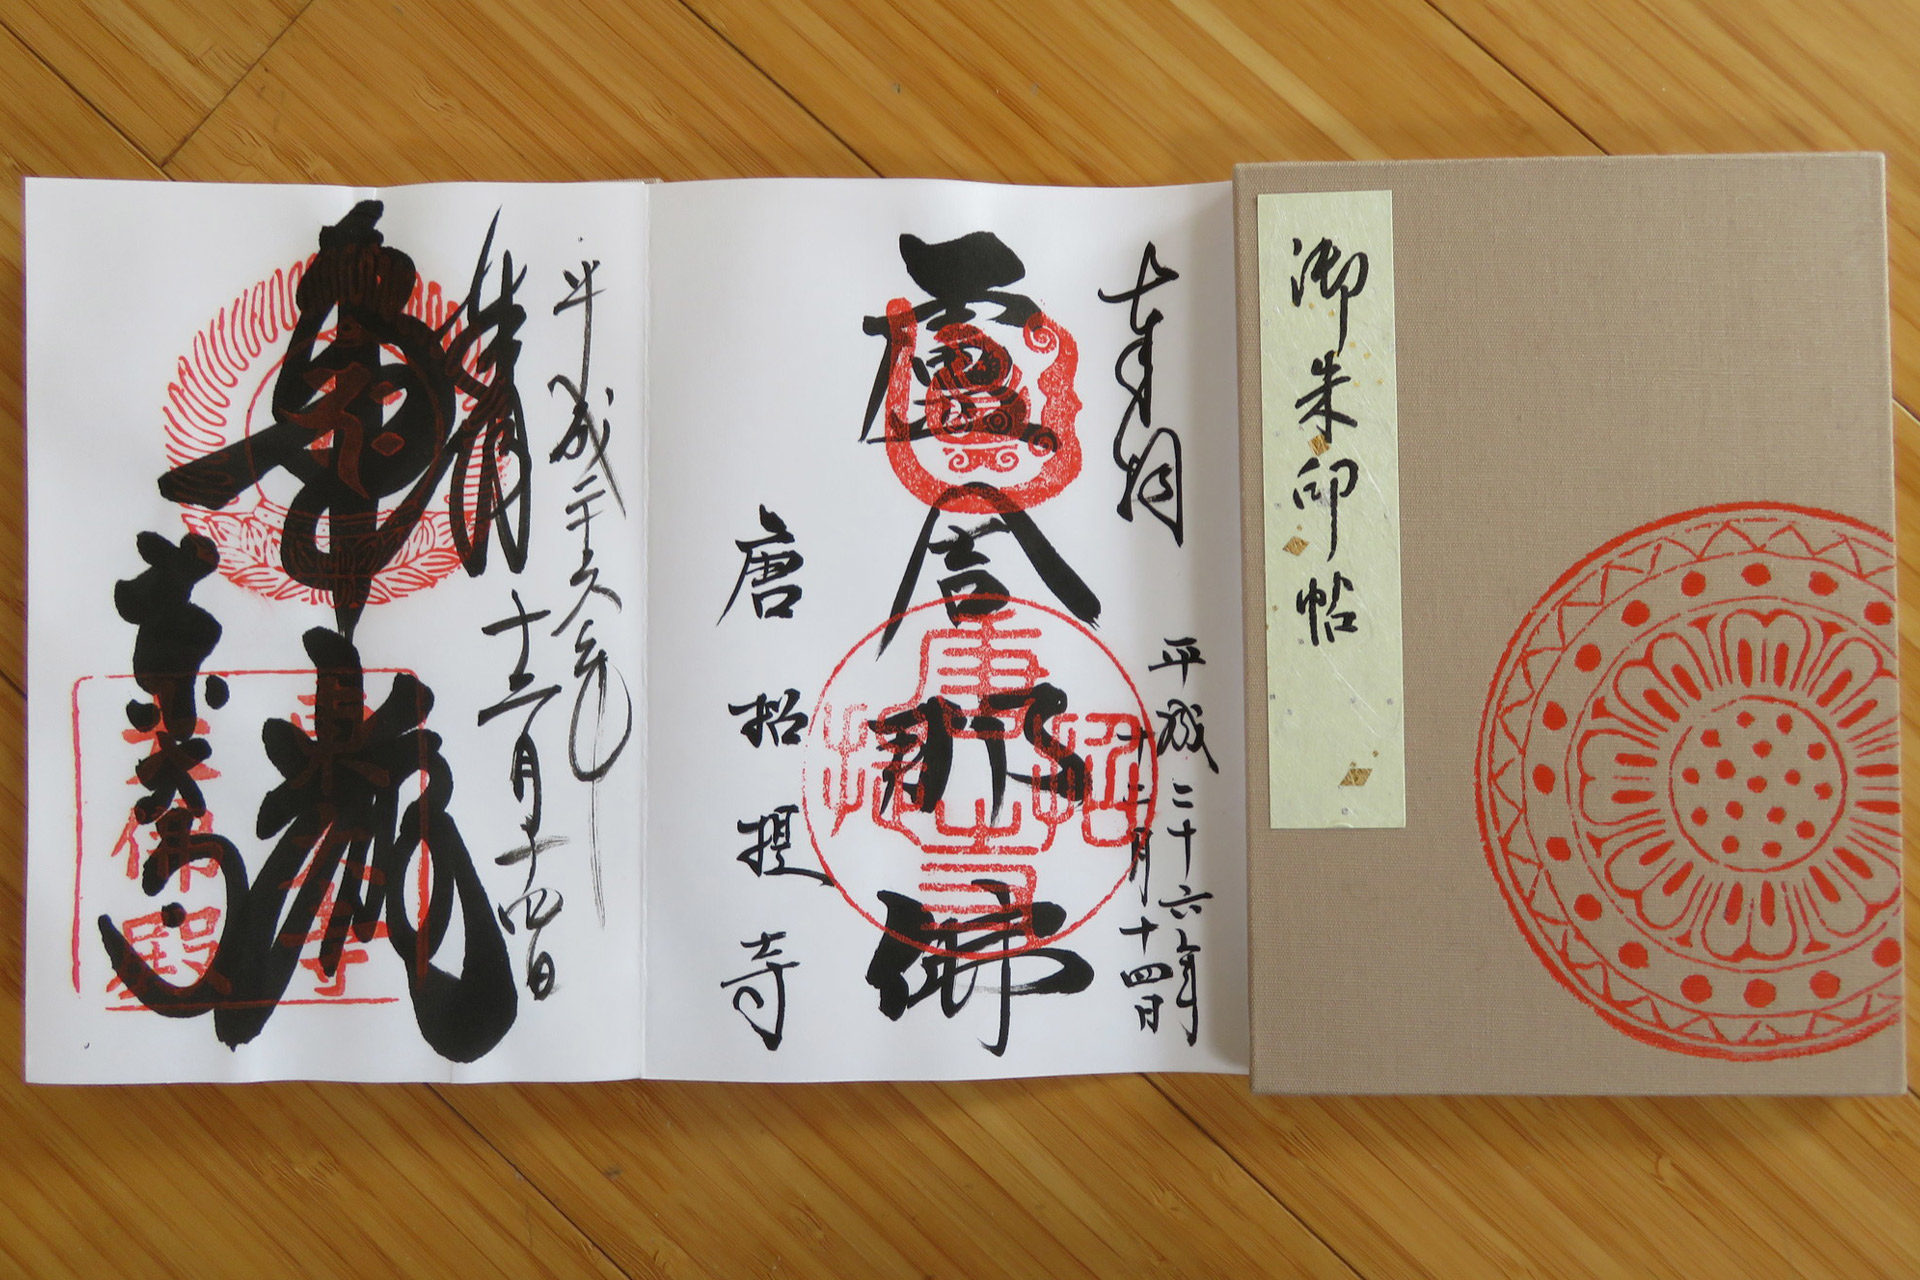 御朱印帖
奉拝
平成二十六年
十二月十四日
盧舎那佛
唐招提寺
唐招提寺
平成二十六年
十二月十四日
奉拝
東大寺
東大寺
大佛殿